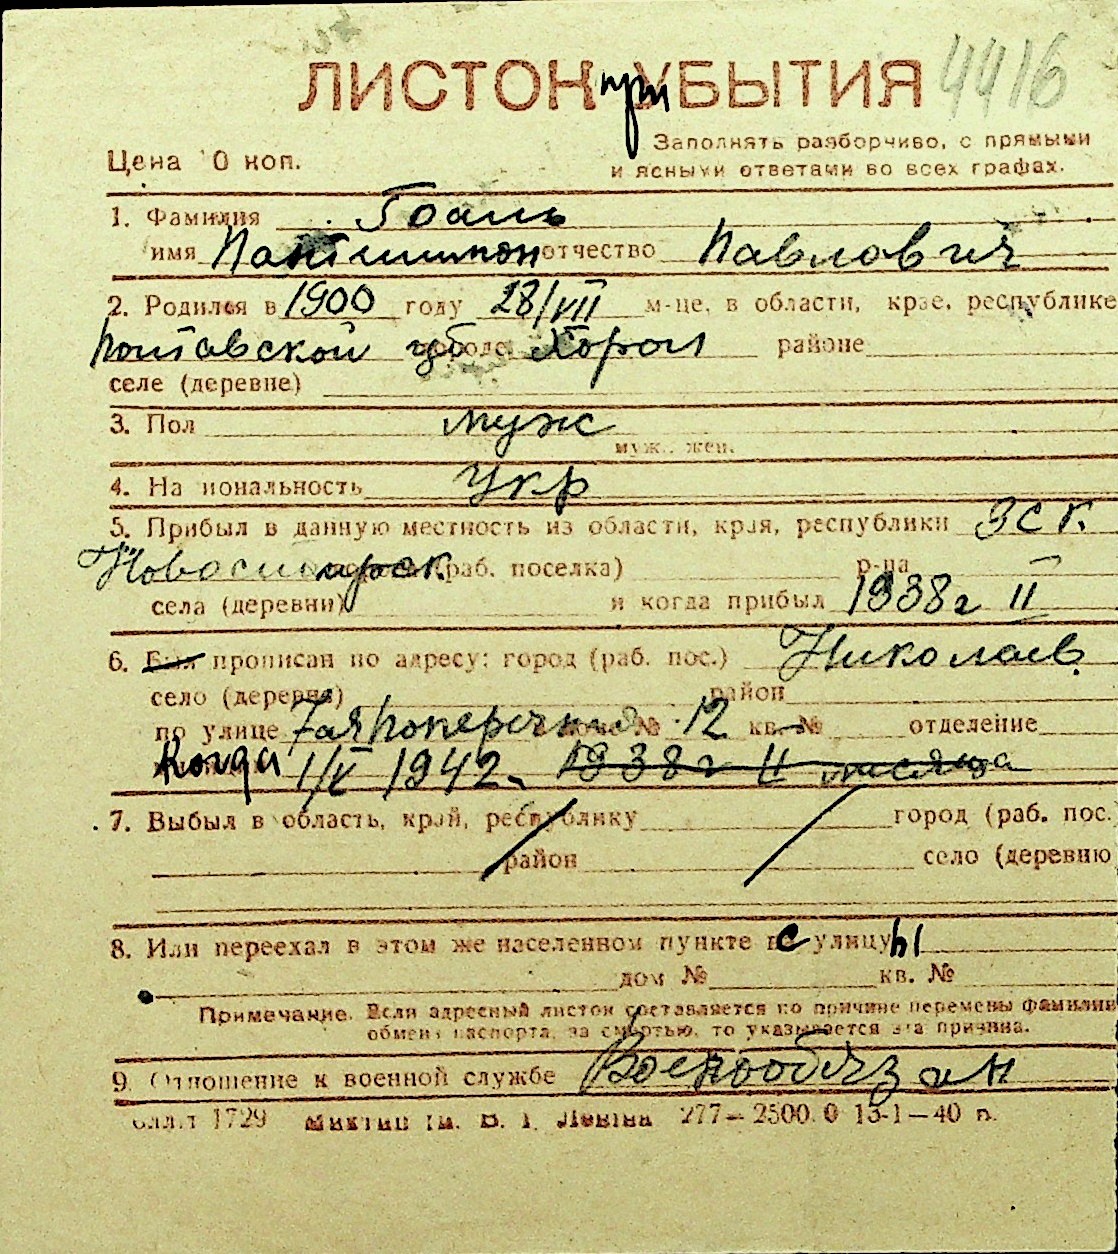 ЛИСТОК при УБЫТИЯ 4416
Цена 0 коп.
Заполнять разборчиво, с прямыми
и ясными ответами во всех графах.
1. Фамилия Гоань
имя Пантилимон отчество Павлович
2. Родился в 1900 году 28/VII м-це, в области, крае, республике
Полтавской губ городе Хорол районе
селе (деревне)
3. Пол муж
муж. жен.
4. Национальность Укр
5. Прибыл в данную местность из области, края, республики ЗСК.
Новосибирск. (раб. поселка) р-на
села (деревни) и когда прибыл 1938 г II
6. Был прописан по адресу: город (раб. пос.) Николаев.
село (деревня) район
по улице 7ая Поперечная дом № 12 кв. № отделение
Когда 1/V 1942 1938 г II месяца
7. Выбыл в область, край, республику город (раб. пос.
район село (деревню
8. Или переехал в этом же населенном пункте с улицы
дом № кв. №
Примечание. Если адресный листок составляется по причине перемены фамилии
обмена паспорта, за смертью, то указывается эта причина.
9. Отношение к военной службе Военнообязан
1729 им. В. І. Леніна 277—2500.0 13-1—40 п.